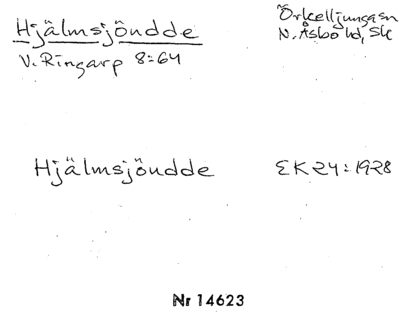 Hjälmsjöudde
V. Ringarp 8:64
Örkelljunga sn
N. Åsbo hd, Sk
Hjälmsjöudde
EK 24:1928
Nr 14623